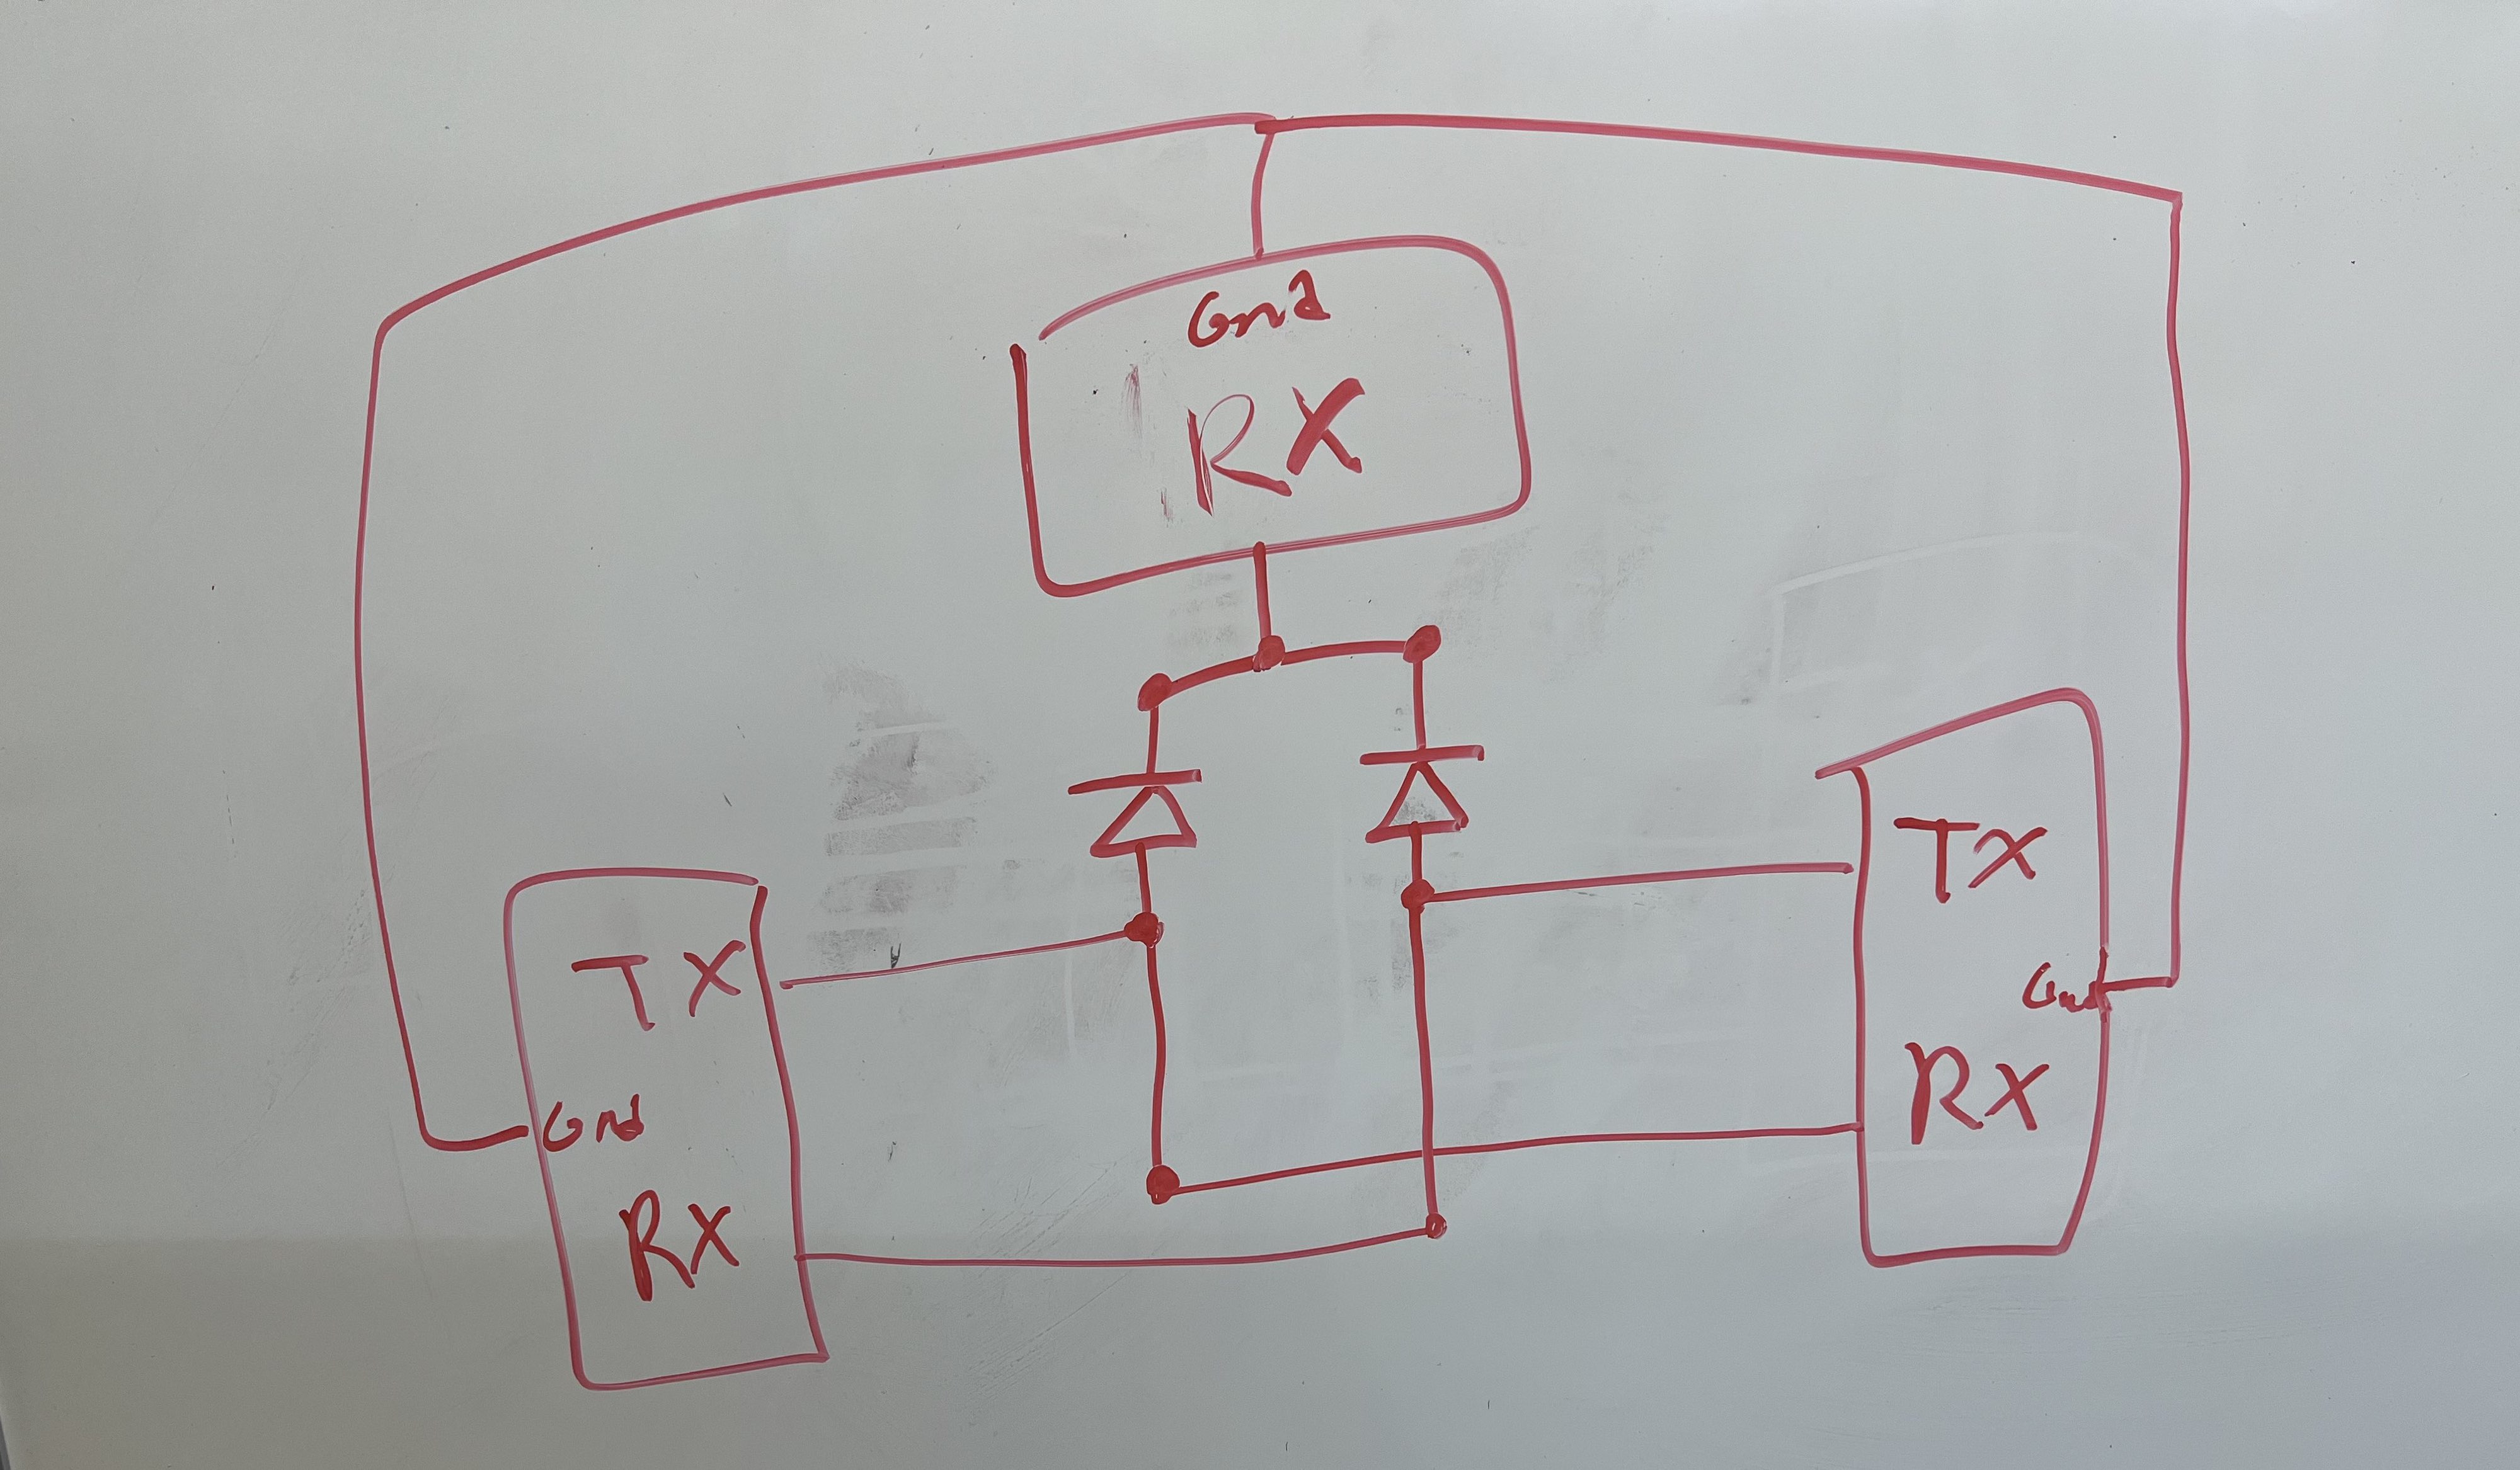 Gnd
RX
TX
Gnd
RX
TX
Gnd
RX